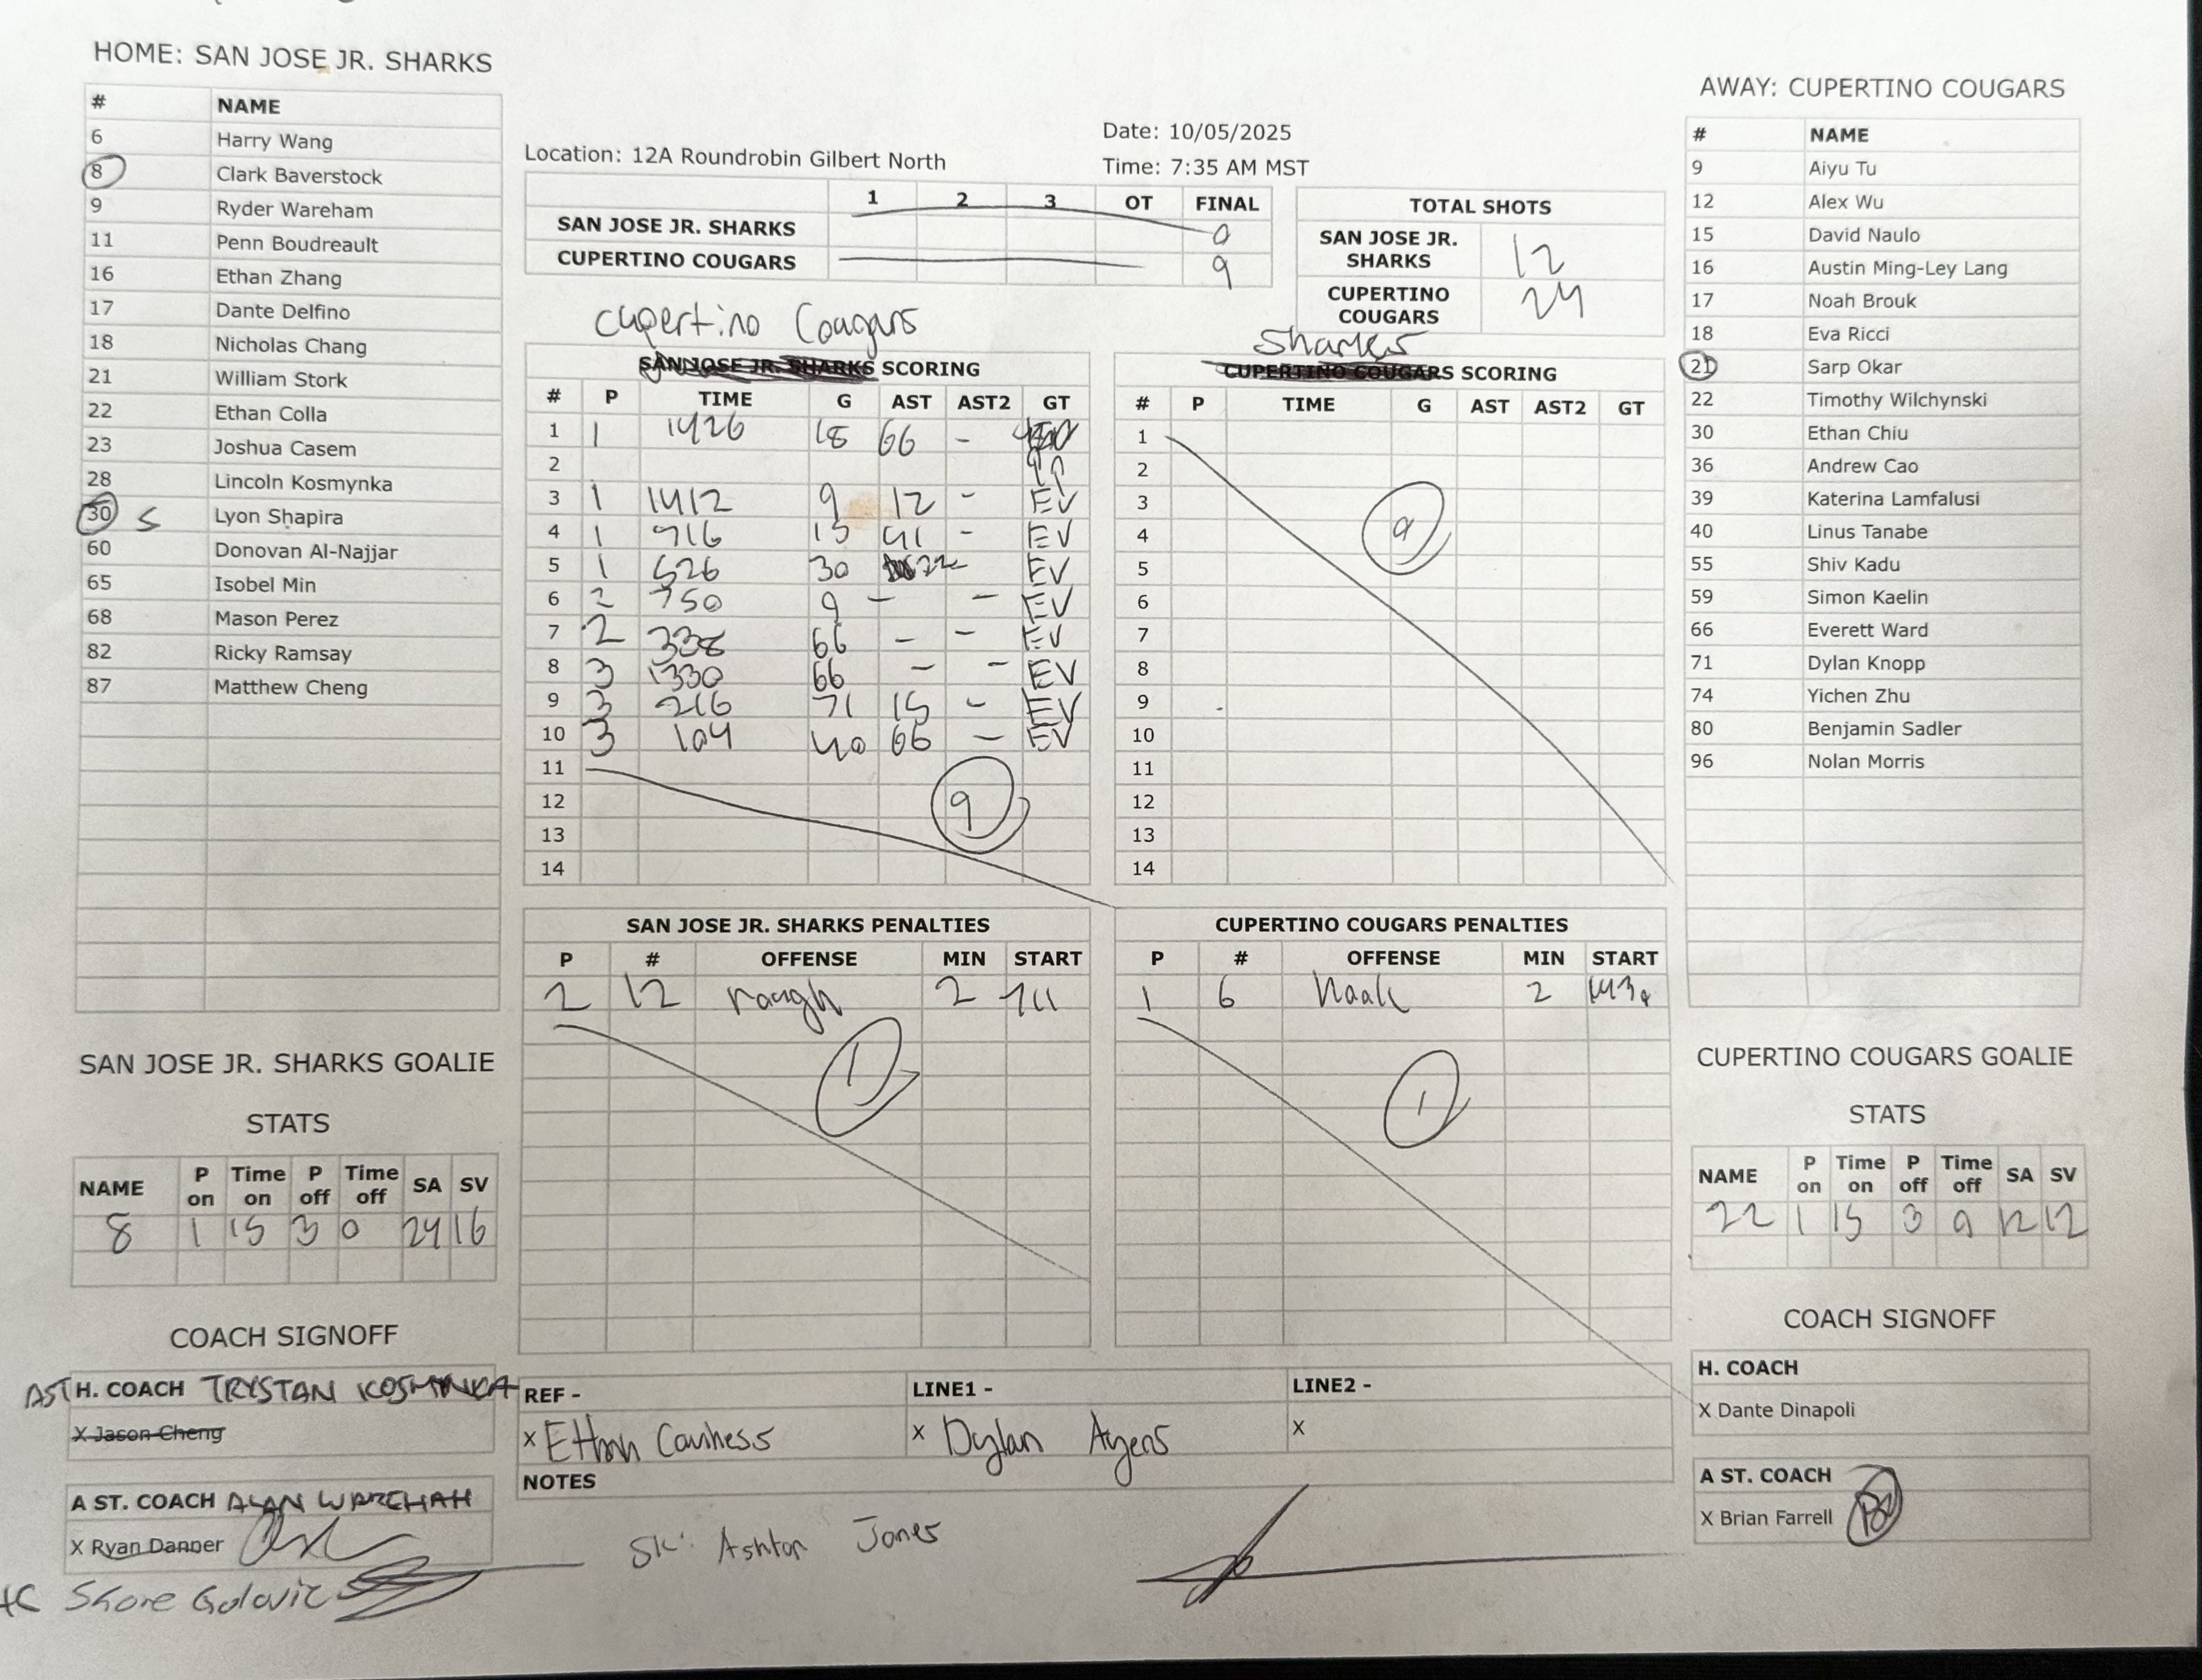 HOME: SAN JOSE JR. SHARKS
# NAME
6 Harry Wang
8 Clark Baverstock
9 Ryder Wareham
11 Penn Boudreault
16 Ethan Zhang
17 Dante Delfino
18 Nicholas Chang
21 William Stork
22 Ethan Colla
23 Joshua Casem
28 Lincoln Kosmynka
30 S Lyon Shapira
60 Donovan Al-Najjar
65 Isobel Min
68 Mason Perez
82 Ricky Ramsay
87 Matthew Cheng
SAN JOSE JR. SHARKS GOALIE
STATS
NAME P on Time on P off Time off SA SV
8 1 15 3 0 24 16
COACH SIGNOFF
AST H. COACH TRYSTAN KOSMYNKA
X Jason Cheng
A ST. COACH ALAN WAREHAM
X Ryan Danner
HC Shore Golovic
Location: 12A Roundrobin Gilbert North
Date: 10/05/2025
Time: 7:35 AM MST
1 2 3 OT FINAL
SAN JOSE JR. SHARKS 0
CUPERTINO COUGARS 9
TOTAL SHOTS
SAN JOSE JR. SHARKS 12
CUPERTINO COUGARS 24
Cupertino Cougars
SAN JOSE JR. SHARKS SCORING
# P TIME G AST AST2 GT
1 1 1426 18 66 -
2
3 1 1412 9 12 - EV
4 1 916 15 41 - EV
5 1 526 30 22 - EV
6 2 750 9 - - EV
7 2 338 66 - - EV
8 3 1330 66 - - EV
9 3 216 71 15 - EV
10 3 104 40 66 - EV
11
12 9
13
14
Sharks
CUPERTINO COUGARS SCORING
# P TIME G AST AST2 GT
1
2
3
4 0
5
6
7
8
9
10
11
12
13
14
SAN JOSE JR. SHARKS PENALTIES
P # OFFENSE MIN START
2 12 rough 2 711
1
CUPERTINO COUGARS PENALTIES
P # OFFENSE MIN START
1 6 Hook 2 1430
1
REF - LINE1 - LINE2 -
X Ethan X Dylan Ayers X
NOTES
SK: Ashton Jones
AWAY: CUPERTINO COUGARS
# NAME
9 Aiyu Tu
12 Alex Wu
15 David Naulo
16 Austin Ming-Ley Lang
17 Noah Brouk
18 Eva Ricci
21 Sarp Okar
22 Timothy Wilchynski
30 Ethan Chiu
36 Andrew Cao
39 Katerina Lamfalusi
40 Linus Tanabe
55 Shiv Kadu
59 Simon Kaelin
66 Everett Ward
71 Dylan Knopp
74 Yichen Zhu
80 Benjamin Sadler
96 Nolan Morris
CUPERTINO COUGARS GOALIE
STATS
NAME P on Time on P off Time off SA SV
22 1 15 3 0 12 12
COACH SIGNOFF
H. COACH
X Dante Dinapoli
A ST. COACH
X Brian Farrell